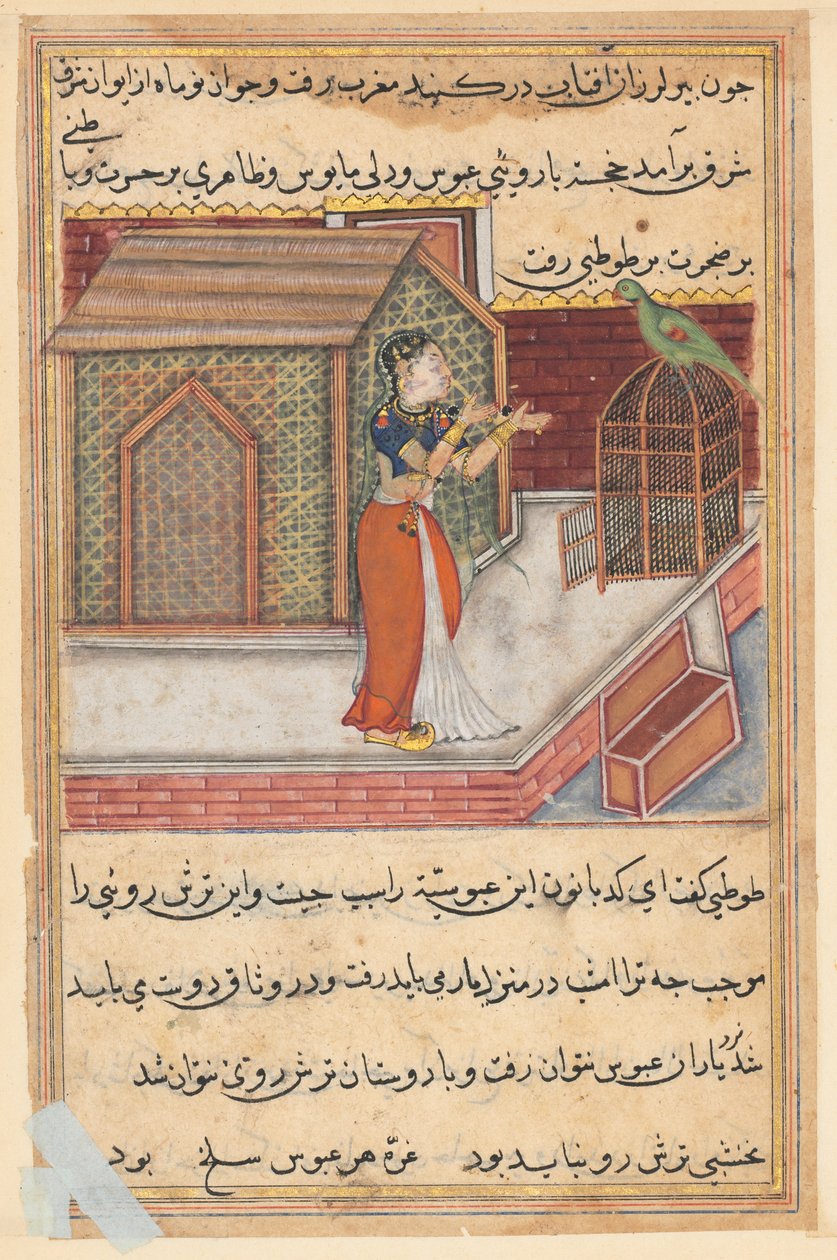 چون پیر لرزان آفتاب در کنبد مغرب رفت و جوان نو ماه از ایوان شرق
شرق برآمد خجسته با روئی عبوس و دلی مایوس و ظاهری پر حسرت و باطنی
پر ضجرت بر طوطی رفت
طوطی گفت ای کدبانو این عبوسیّة را سبب چیست و این ترش روئی را
موجب چه ترا امشب در منزل یار می باید رفت و در وثاق دوست می باید
شد نزد یاران عبوس نتوان رفت و با دوستان ترش روئی نتوان شد
نخشبی ترش رو نباید بود غرّه هر عبوس سلخ بود